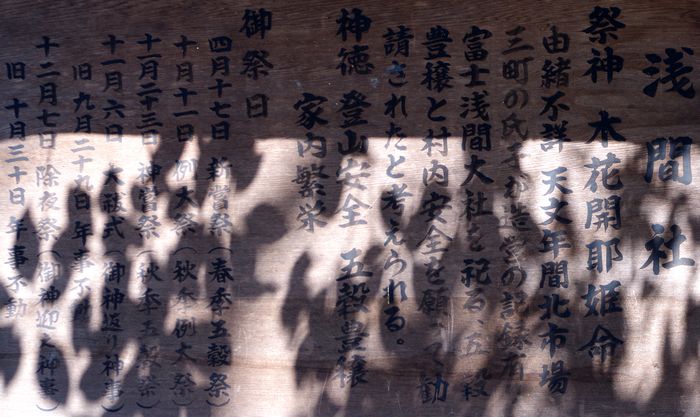 浅間社
祭神 木花開耶姫命
由緒不詳 天文年間北市場
三町の氏子が造営の記録有
富士浅間大社を祀る、五穀
豊穣と村内安全を願って勧
請されたと考えられる。
神徳 登山安全 五穀豊穣
家内繁栄
御祭日
四月十七日 新嘗祭（春季五穀祭）
十月十一日 例大祭（秋季例大祭）
十一月二十三日 神嘗祭（秋季五穀祭）
十一月六日 大祓式（御神返り神事）
旧 九月二十九日 年事不動
十二月七日 除夜祭（御神迎え神事）
旧 十月三十日 年事不動